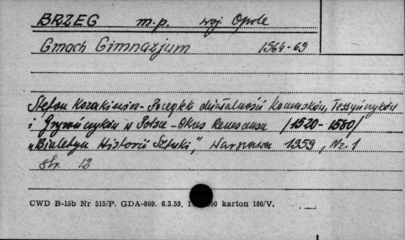 BRZEG m.p. woj Opole
Gmach Gimnazjum 1564-69
Stefan Kozakiewicz - Początek działalności Komasków, Tessyńczyków
i Gryzończyków w Polsce - Okres Renesansu /1520-1580/
"Biuletyn Historii Sztuki", Warszawa 1959, Nr. 1
str. 12
CWD B-15b Nr 515/P. GDA-809. 6.3.59. karton 180/V.